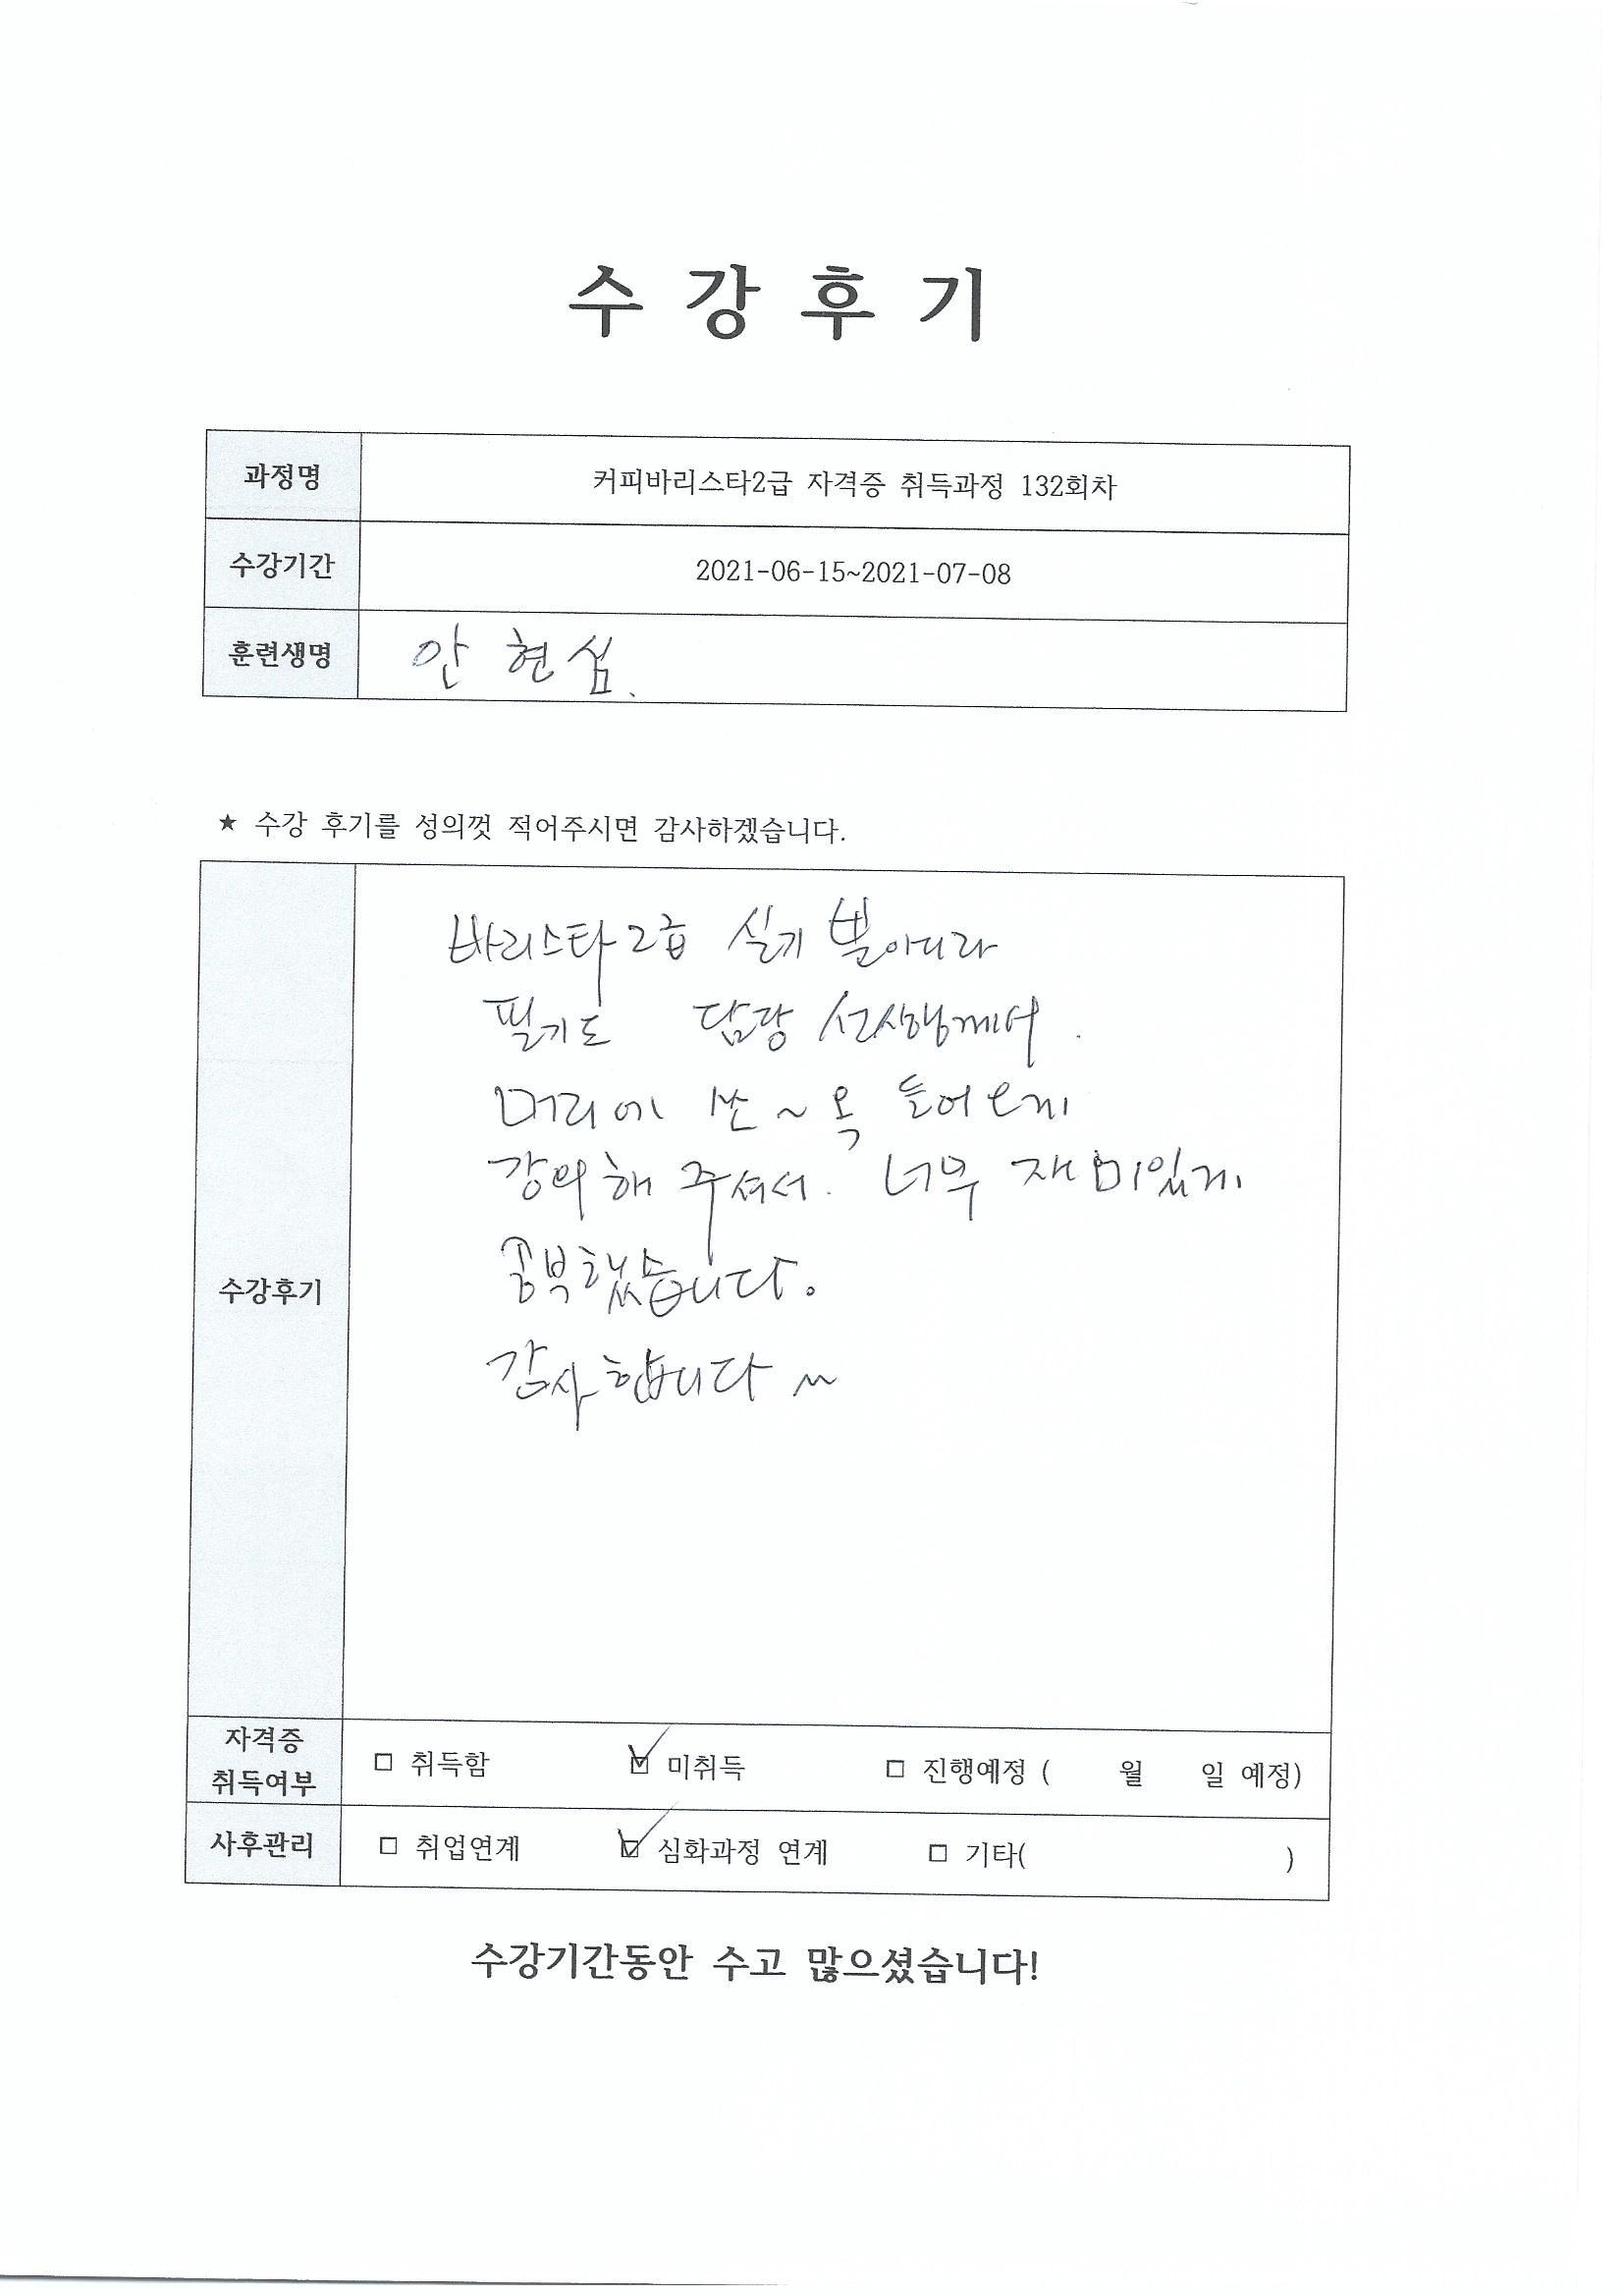 수 강 후 기
과정명 커피바리스타2급 자격증 취득과정 132회차
수강기간 2021-06-15~2021-07-08
훈련생명 안 현 섬.
★ 수강 후기를 성의껏 적어주시면 감사하겠습니다.
수강후기
바리스타2급 실기 뿐아니라
필기도 담당 선생님께서.
머리에 쏘~옥 들어오게
강의해 주셔서. 너무 재미있게
공부했습니다.
감사합니다~
자격증
취득여부
□ 취득함 ☑ 미취득 □ 진행예정 ( 월 일 예정)
사후관리 □ 취업연계 ☑ 심화과정 연계 □ 기타( )
수강기간동안 수고 많으셨습니다!